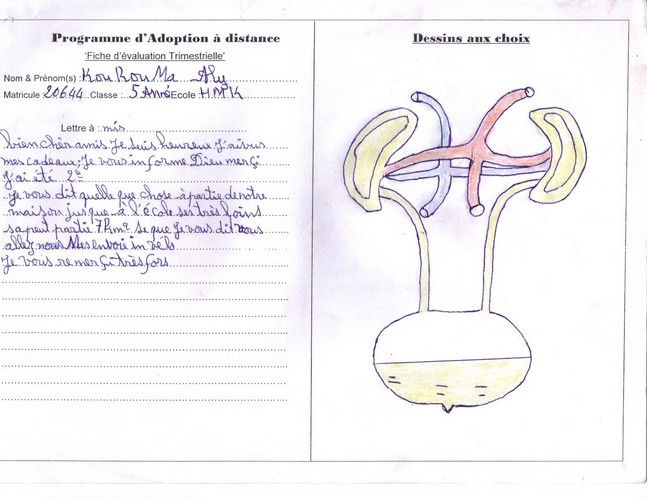 Programme d'Adoption à distance
'Fiche d'évaluation Trimestrielle'
Nom & Prénom(s) : KouRouMa Aly
Matricule 20644 Classe : 5 Anné Ecole HMK
Lettre à : mis
bien chèr amis Je suis heureux J'ai vus
mes cadeau, Je vous informe Dieu merçi
J'ai été 2e
Je vous dit quelle que chose à partie de notre
maison jusque à l'école ses très loins
sa peut partie 7 km se que Je vous dit vous
allez nous envoie in vélo
Je vous remerçi très fors
Dessins aux choix